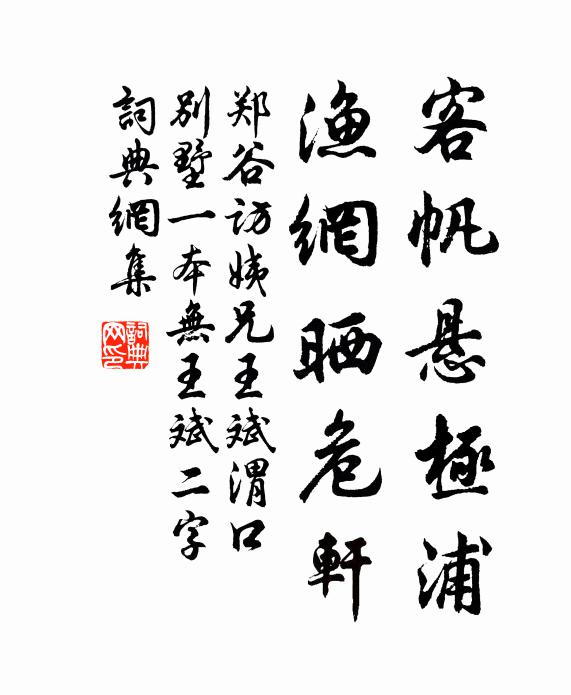 客帆悬極浦
漁網晒危軒
郑谷访姨兄王斌渭口
别墅一本無王斌二字
詞典網集
詞典網印